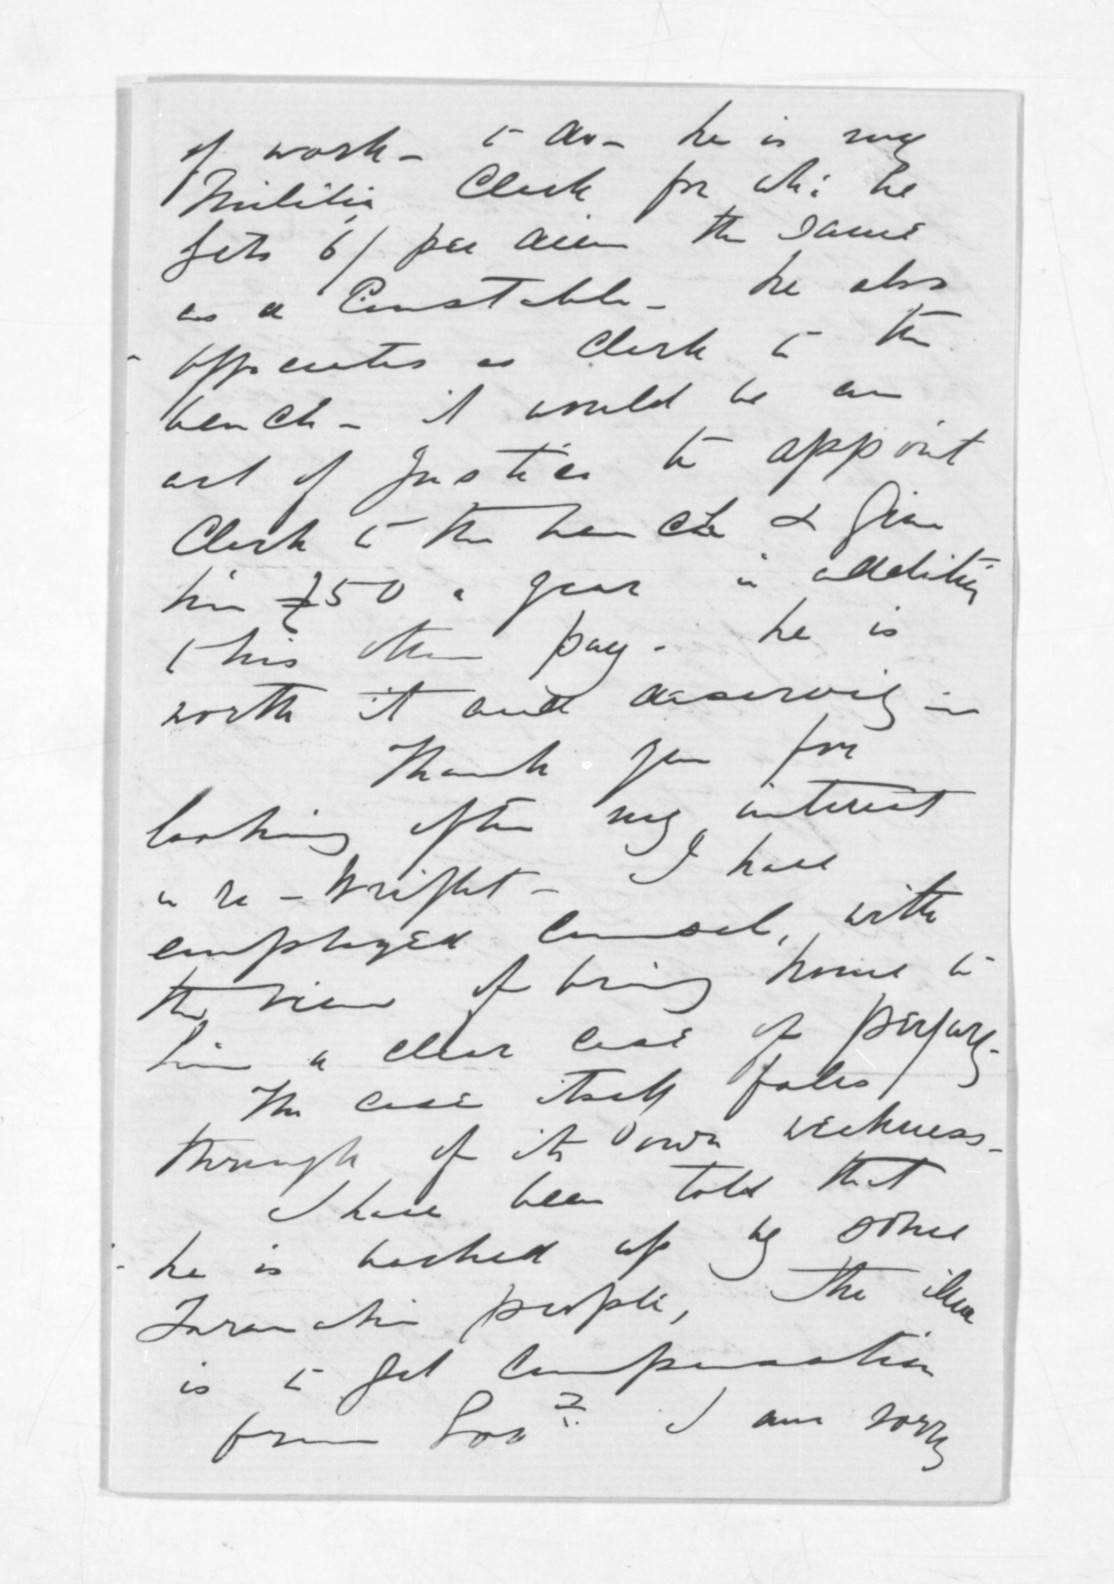 of work - to do - he is my
Militia Clerk for whi: he
gets 6/ per diem the same
as a Constable - he also
officiates as Clerk to the
bench - it would be an
act of Justice to appoint
Clerk to the bench & give
him £50 a year in addition
to his other pay - he is
worth it and deserving -
Thank you for
looking after my interest
in re - Wright - I have
employed Counsel, with
the view of bring home to
him a clear case of perjury -
The case itself falls
through of its own weakness -
I have been told that
he is backed up by some
Taranaki people, The idea
is to get Compensation
from Govt I am sorry